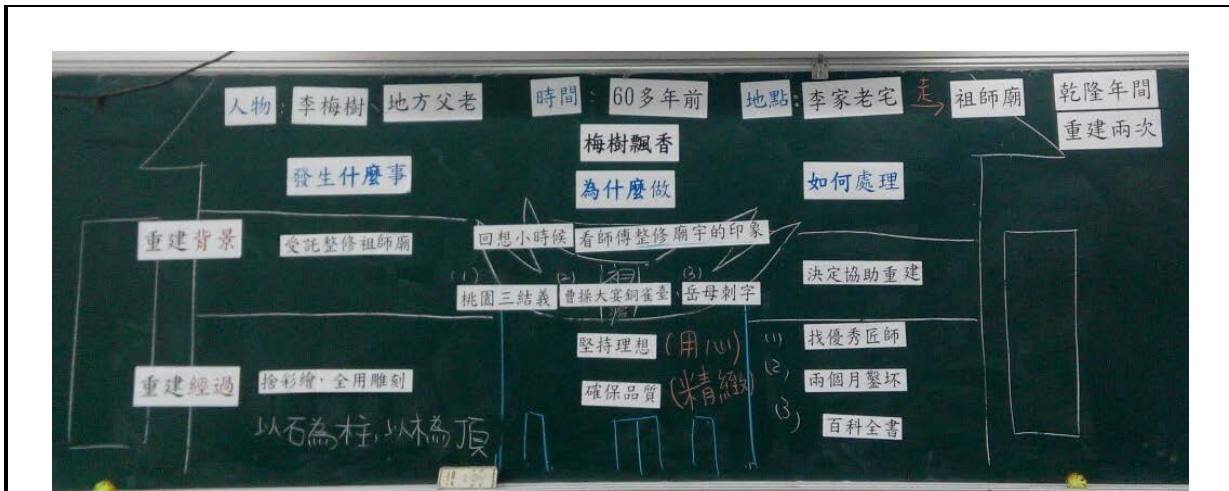 人物:李梅樹、地方父老 時間:60多年前 地點:李家老宅 走→ 祖師廟 乾隆年間
重建兩次
梅樹飄香
發生什麼事 為什麼做 如何處理
重建背景 受託整修祖師廟 回想小時候 看師傅整修廟宇的印象
決定協助重建
(1) 桃園三結義 (2) 曹操大宴銅雀臺、(3) 岳母刺字
祖
堅持理想(用心) (1) 找優秀匠師
重建經過 捨彩繪,全用雕刻 確保品質(精緻) (2) 兩個月鑿坏
(3) 百科全書
以石為柱,以木為頂